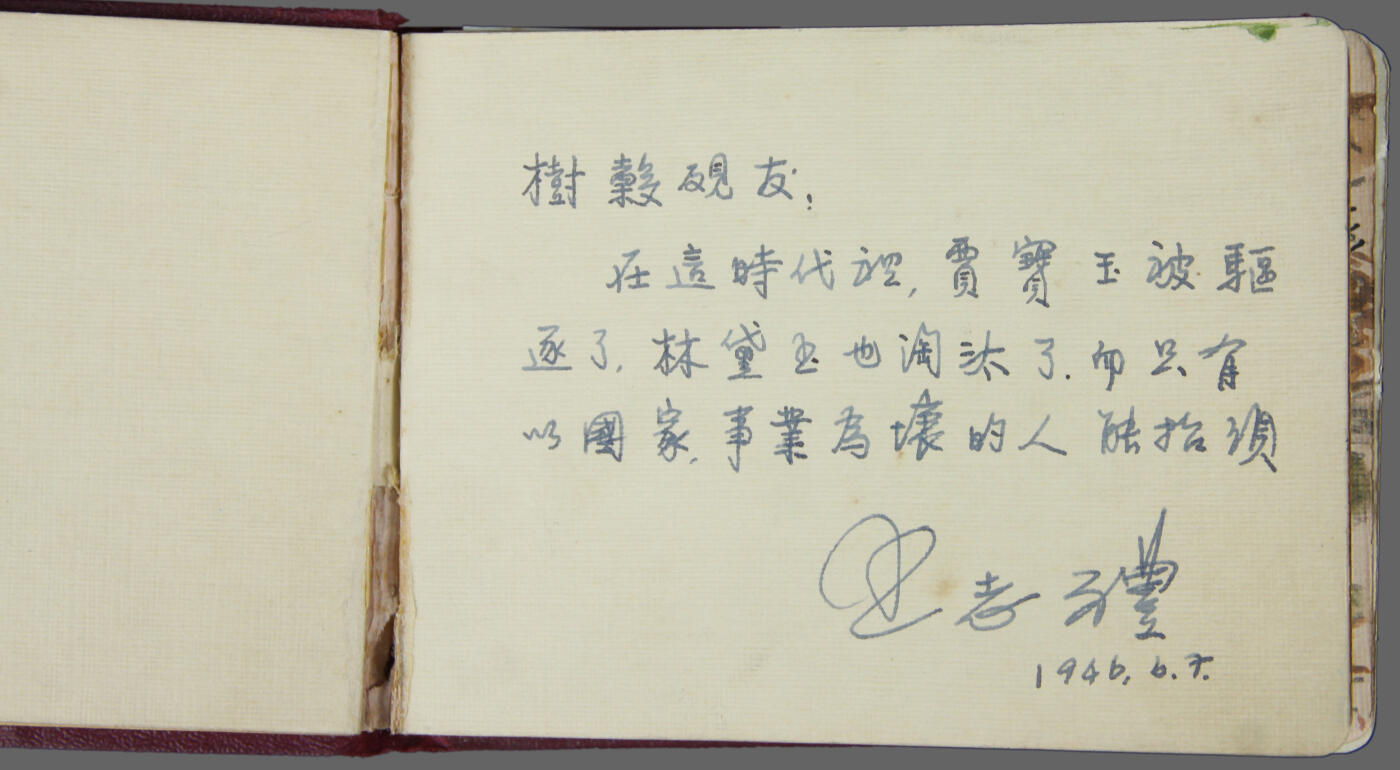 樹穀硯友：
在這時代裡，賈寶玉被驅
逐了，林黛玉也淘汰了．而只有
以國家，事業為懷的人能抬頭
志禮
1946. 6. 7.